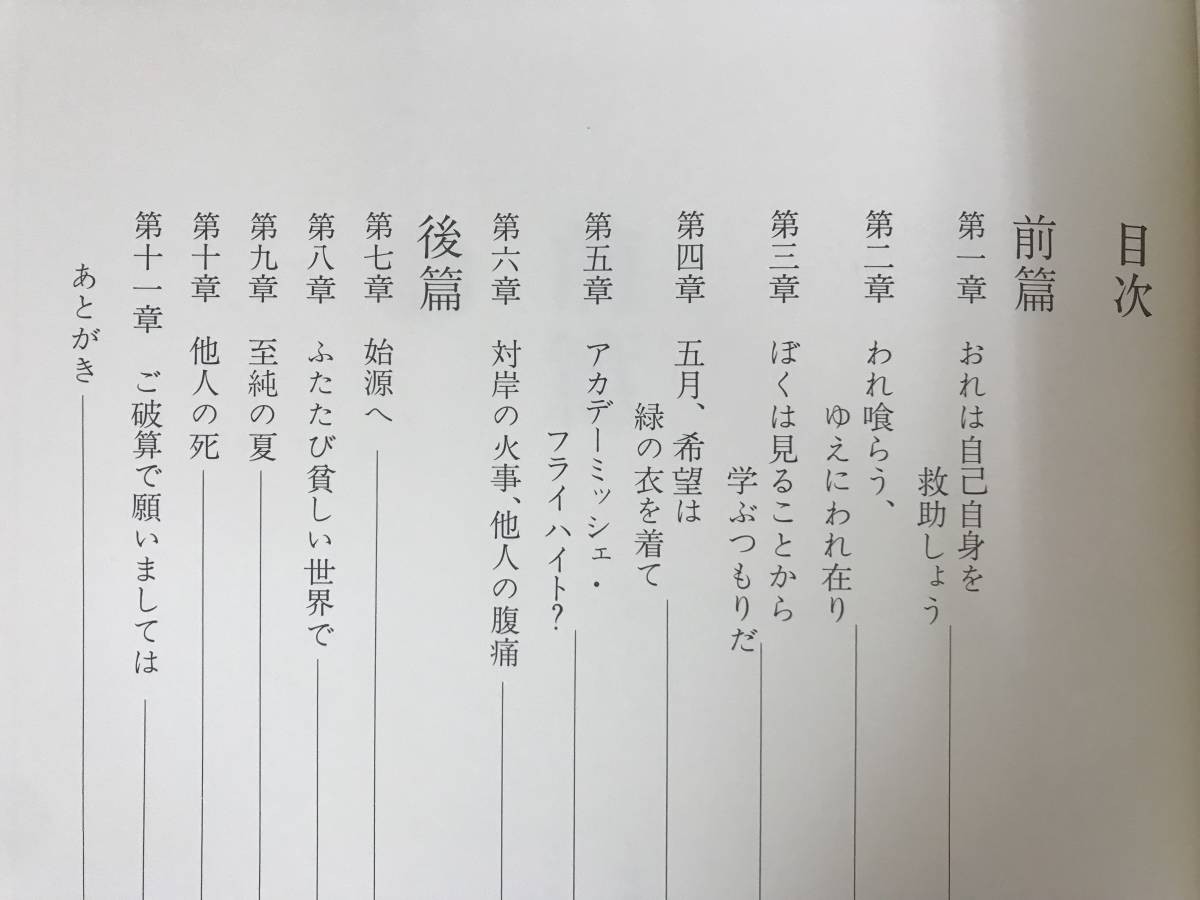 目次
前篇
第一章 おれは自己自身を
救助しょう
第二章 われ喰らう、
ゆえにわれ在り
第三章 ぼくは見ることから
学ぶつもりだ
第四章 五月、希望は
緑の衣を着て
第五章 アカデーミッシェ・
フライハイト?
第六章 対岸の火事、他人の腹痛
後篇
第七章 始源へ
第八章 ふたたび貧しい世界で
第九章 至純の夏
第十章 他人の死
第十一章 ご破算で願いましては
あとがき